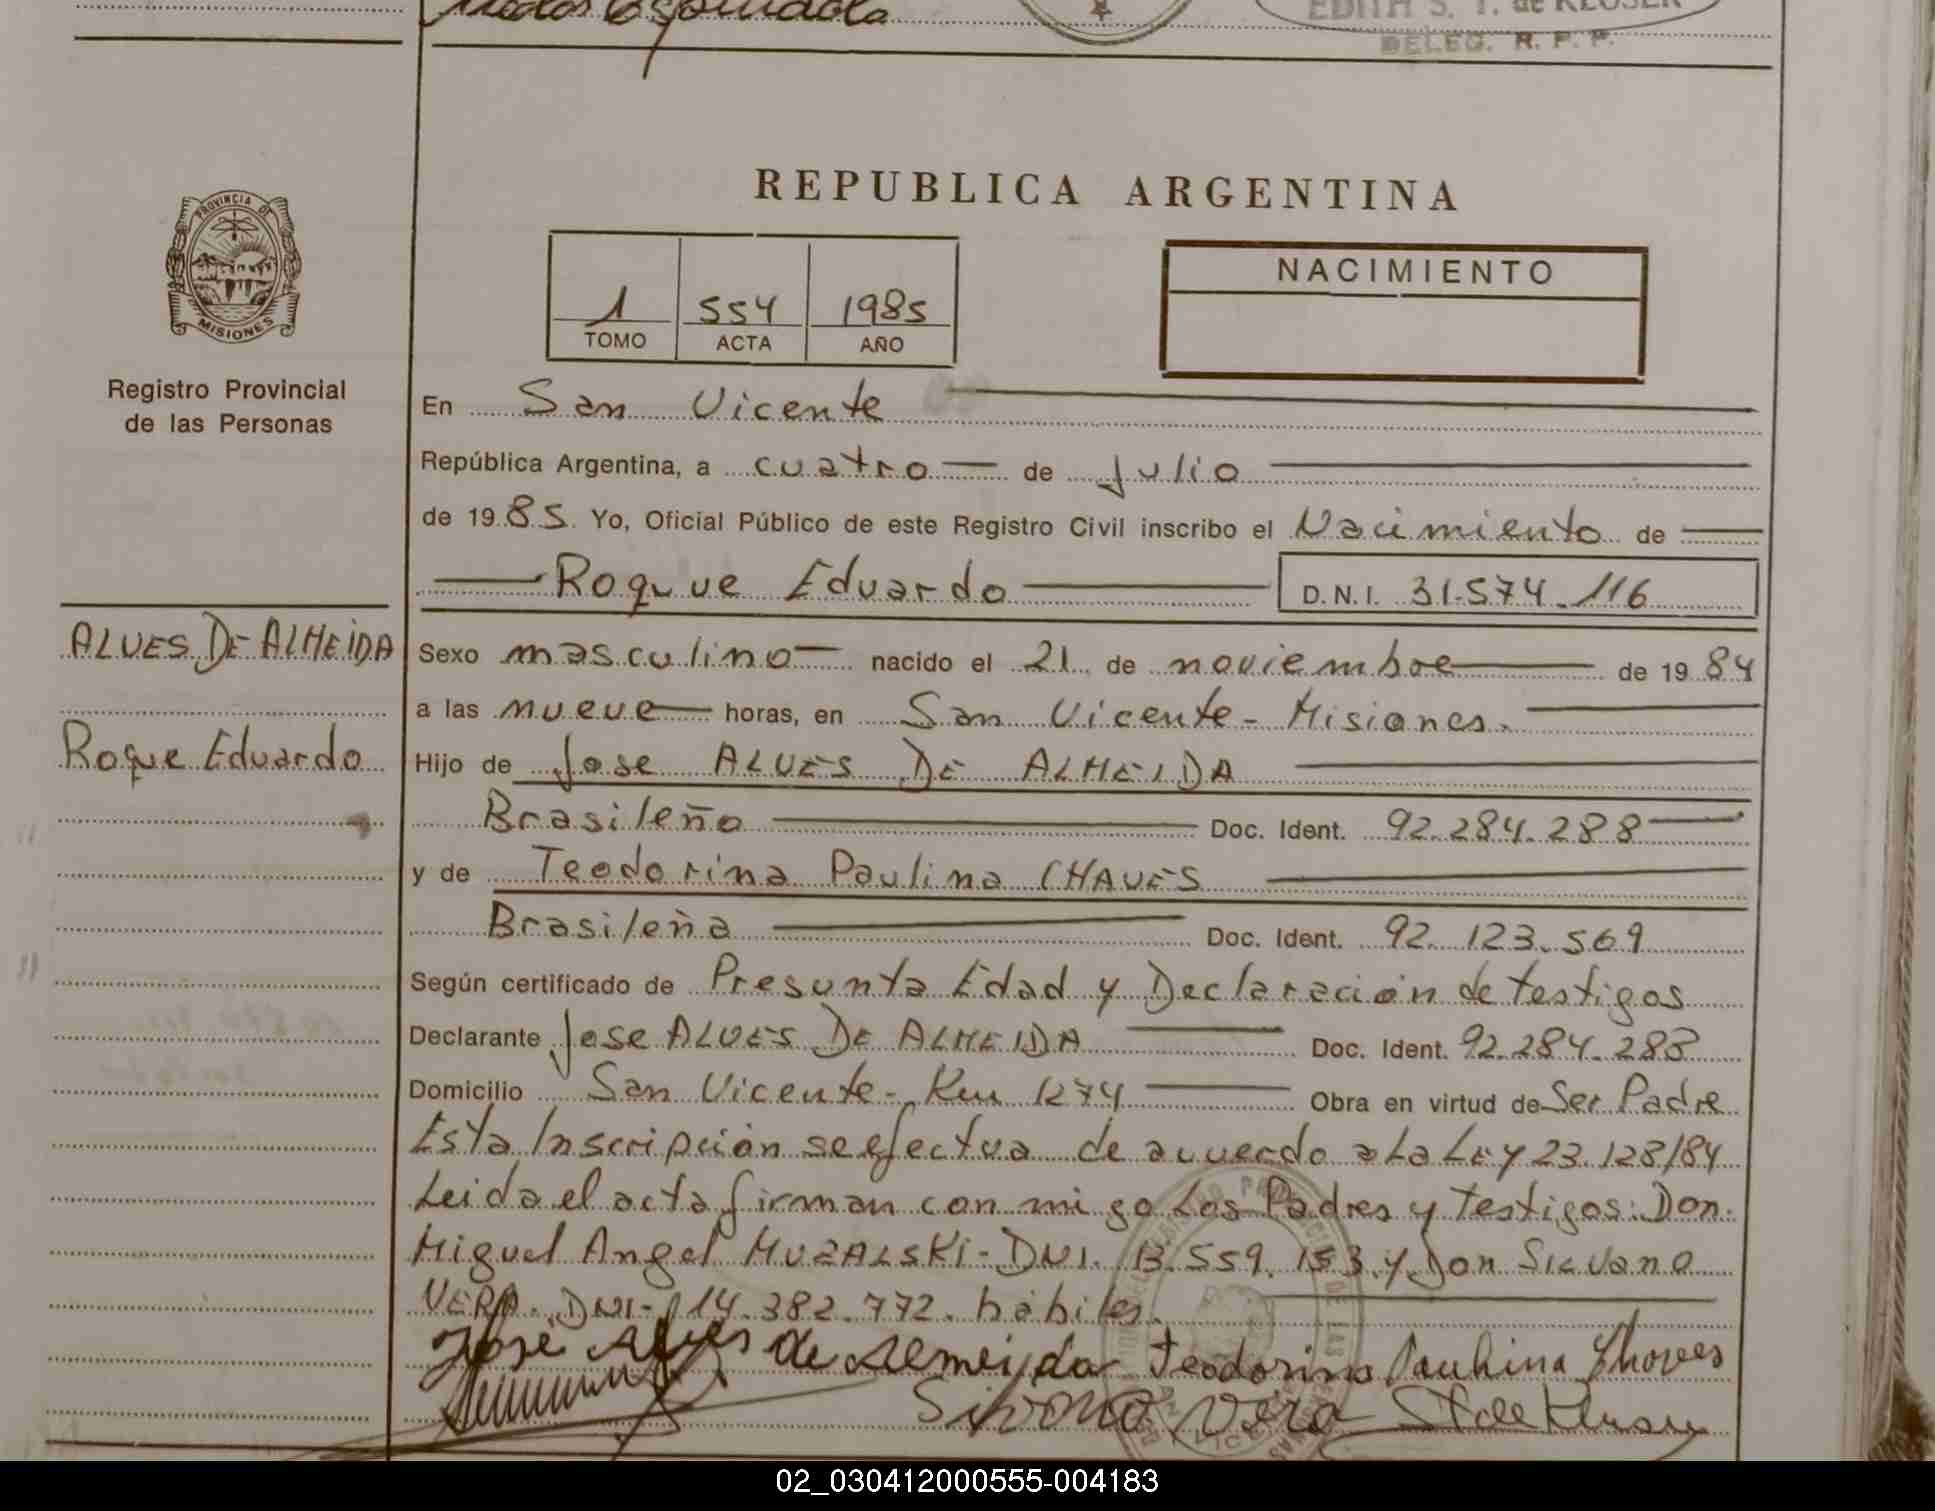 EDITH S. T. de KLOSER
DELEG. R. P. P.
PROVINCIA DE
MISIONES
Registro Provincial
de las Personas
REPUBLICA ARGENTINA
1 554 1985
TOMO ACTA AÑO
NACIMIENTO
En San Vicente
República Argentina, a cuatro de Julio
de 1985. Yo, Oficial Público de este Registro Civil inscribo el Nacimiento de
Roque Eduardo D.N.I. 31.574.116
ALVES DE ALMEIDA
Roque Eduardo
Sexo masculino nacido el 21 de noviembre de 1984
a las nueve horas, en San Vicente - Misiones.
Hijo de Jose ALVES DE ALMEIDA
Brasileño Doc. Ident. 92.284.288
y de Teodorina Paulina CHAVES
Brasileña Doc. Ident. 92.123.569
Según certificado de Presunta Edad y Declaración de testigos
Declarante Jose ALVES DE ALMEIDA Doc. Ident. 92.284.288
Domicilio San Vicente - Km 1274 Obra en virtud de Ser Padre
Esta Inscripción se efectua de acuerdo a La LEY 23.128/84
Leida el acta firman con migo Los Padres y testigos: Don
Miguel Angel MUZALSKI - DNI. 13.559.153 y Don SILVANO
VERA. DNI- 14.382.772. hábiles.
José Alves de Almeida Teodorina Paulina Chaves
Silvano Vera
02_030412000555-004183